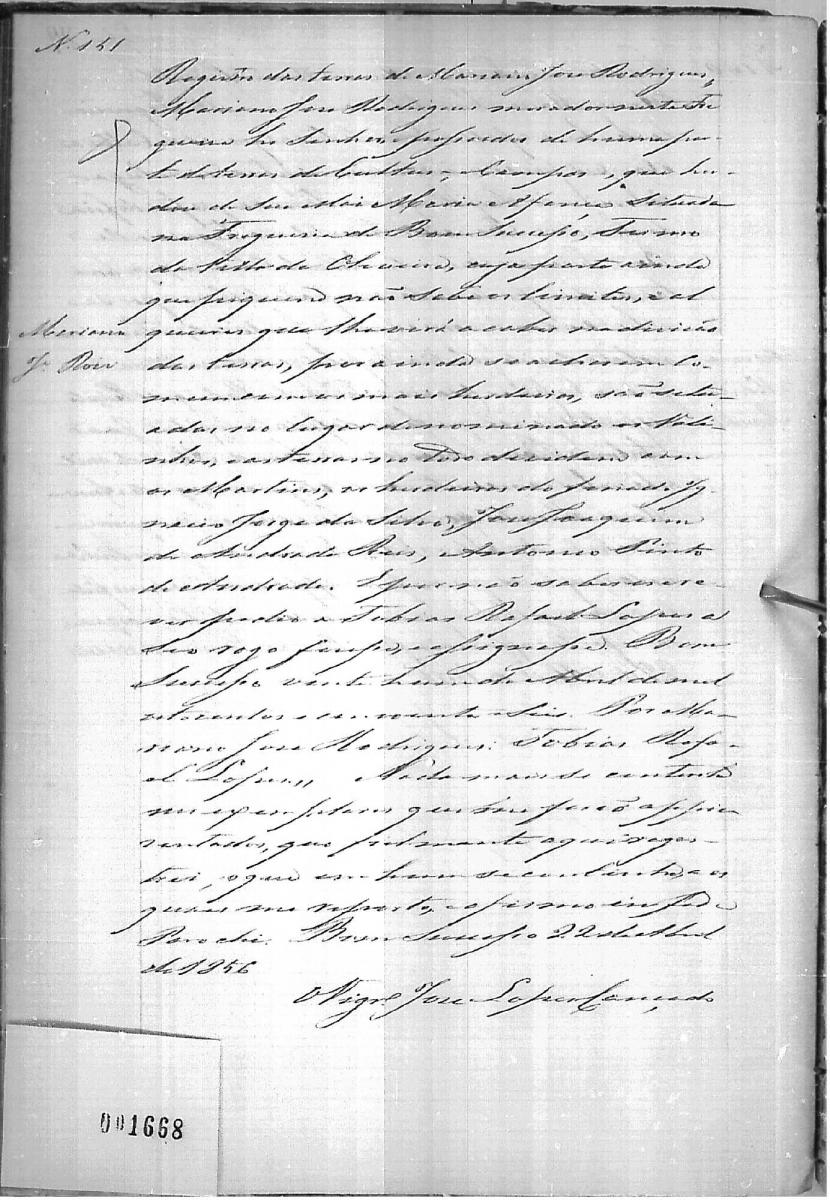 N. 151
Registro das terras de Marianno Jose Rodrigues,
Mariano Jose Rodrigues morador nesta Fre
guezia he Senhor e possuidor de huma par
te de terras de Cultura, e Campos, que her
dou de Sua Mai Maria Afonso Situada
na Freguezia de Bom Sucesso, Termo
da Villa de Oliveira, cuja parte ainda
que piquena não sabe os limites, e al
queires que lhe verá a caber na divizão
Mariano
Je. Roiz
das terras, por ainda se acharem Co-
mum com os mais herdeiros, são situ-
adas no lugar denominado os
e as terras no todo dividem com
os Martins, os herdeiros do finado Ig-
nacio Jorge da Silva, Jose Joaquim
de Andrade Reis, e Antonio Pinto
de Andrade. E por não saber escre-
ver pedio a Tobias Rafael Lopes a
seu rogo fizesse, e assignasse. Bom
Sucesso vinte hum de Abril de mil
oitocentos e cincoenta e Seis. Por Ma-
riano Jose Rodrigues. Tobias Rafa-
el Lopes,, Nada mais se contenta
nos exemplares que me forão appre
zentados, que fielmente aqui reges-
trei, o que em hum se continha, e os
quaes me reporto, e afirmo in fide
Parochi. Bom Sucesso 22 de Abril
de 1856
O Vigro. Jose Lopes Cançado
001668